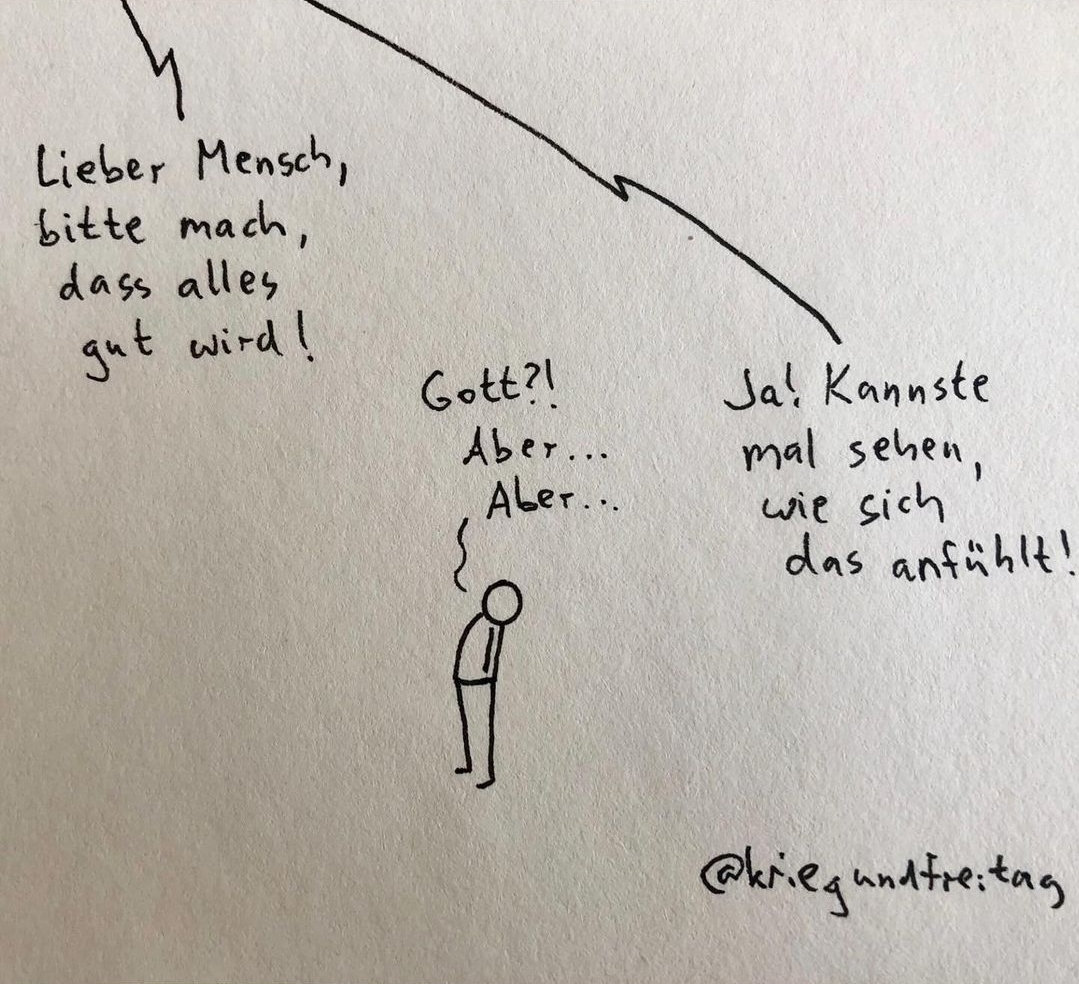 Lieber Mensch,
bitte mach,
dass alles
gut wird!
Gott?!
Aber...
Aber...
Ja! Kannste
mal sehen,
wie sich
das anfühlt!
@kriegundfreitag